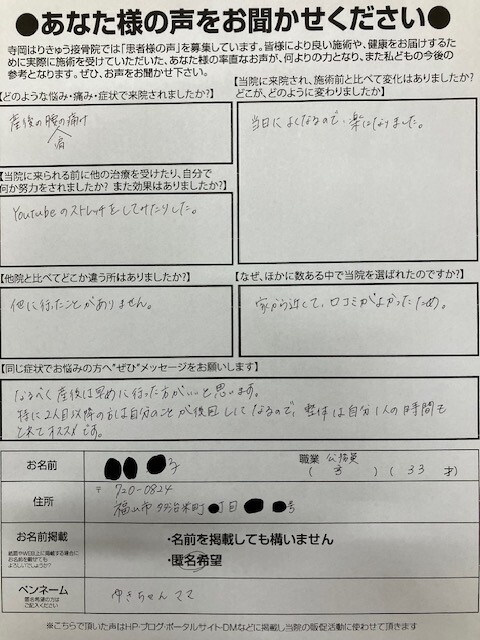 ●あなた様の声をお聞かせください●
寺岡はりきゅう接骨院では「患者様の声」を募集しています。皆様により良い施術や、健康をお届けするた
めに実際に施術を受けていただいた、あなた様の率直なお声が、何よりの力となり、また私どもの今後の
参考となります。ぜひ、お声をお聞かせ下さい。
【どのような悩み・痛み・症状で来院されましたか?】
産後の腰の痛け
痛
【当院に来られる前に他の治療を受けたり、自分で
何か努力をされましたか? また効果はありましたか?】
Youtubeのストレッチをしてみたりした。
【当院に来院され、施術前と比べて変化はありましたか?
どこが、どのように変わりましたか】
当日によくなるので、楽になりました。
【他院と比べてどこか違う所はありましたか?】
他に行ったことがありません。
【なぜ、ほかに数ある中で当院を選ばれたのですか?】
家から近くて、口コミがよかったため。
【同じ症状でお悩みの方へ"ぜひ"メッセージをお願いします】
なるべく産後は早めに行った方がいいと思います。
特に2人目以降の方は自分のことが後回しになるので、整体は自分1人の時間も
とれてオススメです。
お名前
子
職業 公務員
( 33 才)
住所
〒720-0824
福山市多治米町 丁目 号
お名前掲載
紙面やWEB上に掲載する場合に
お名前を載せても
よろしいでしょうか?
・名前を掲載しても構いません
・匿名希望
ペンネーム
匿名希望の方は
ご記入ください
ゆきちゃんママ
※こちらで頂いた声はHP・ブログ・ポータルサイト・DMなどに掲載し当院の販促活動に使わせて頂きます